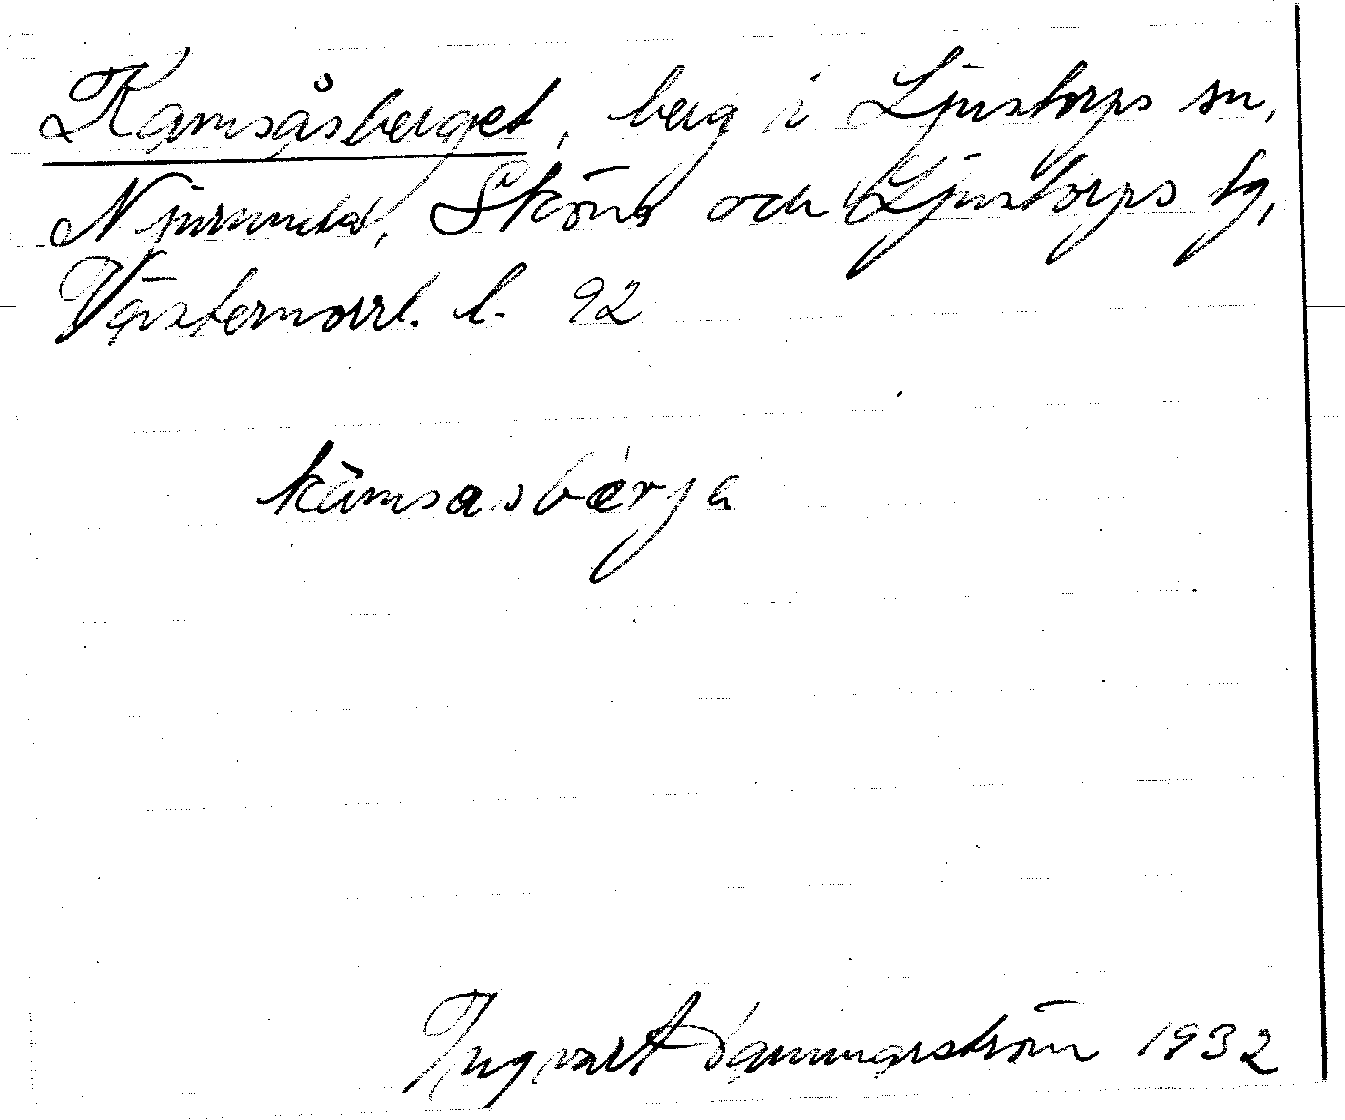 Kamsåsberget, berg i Ljustorps sn,
Njurunda, Sköns och Ljustorps tg,
Västernorrl. l. 92
kāmsasbærja
Ingvart Dammarström 1932